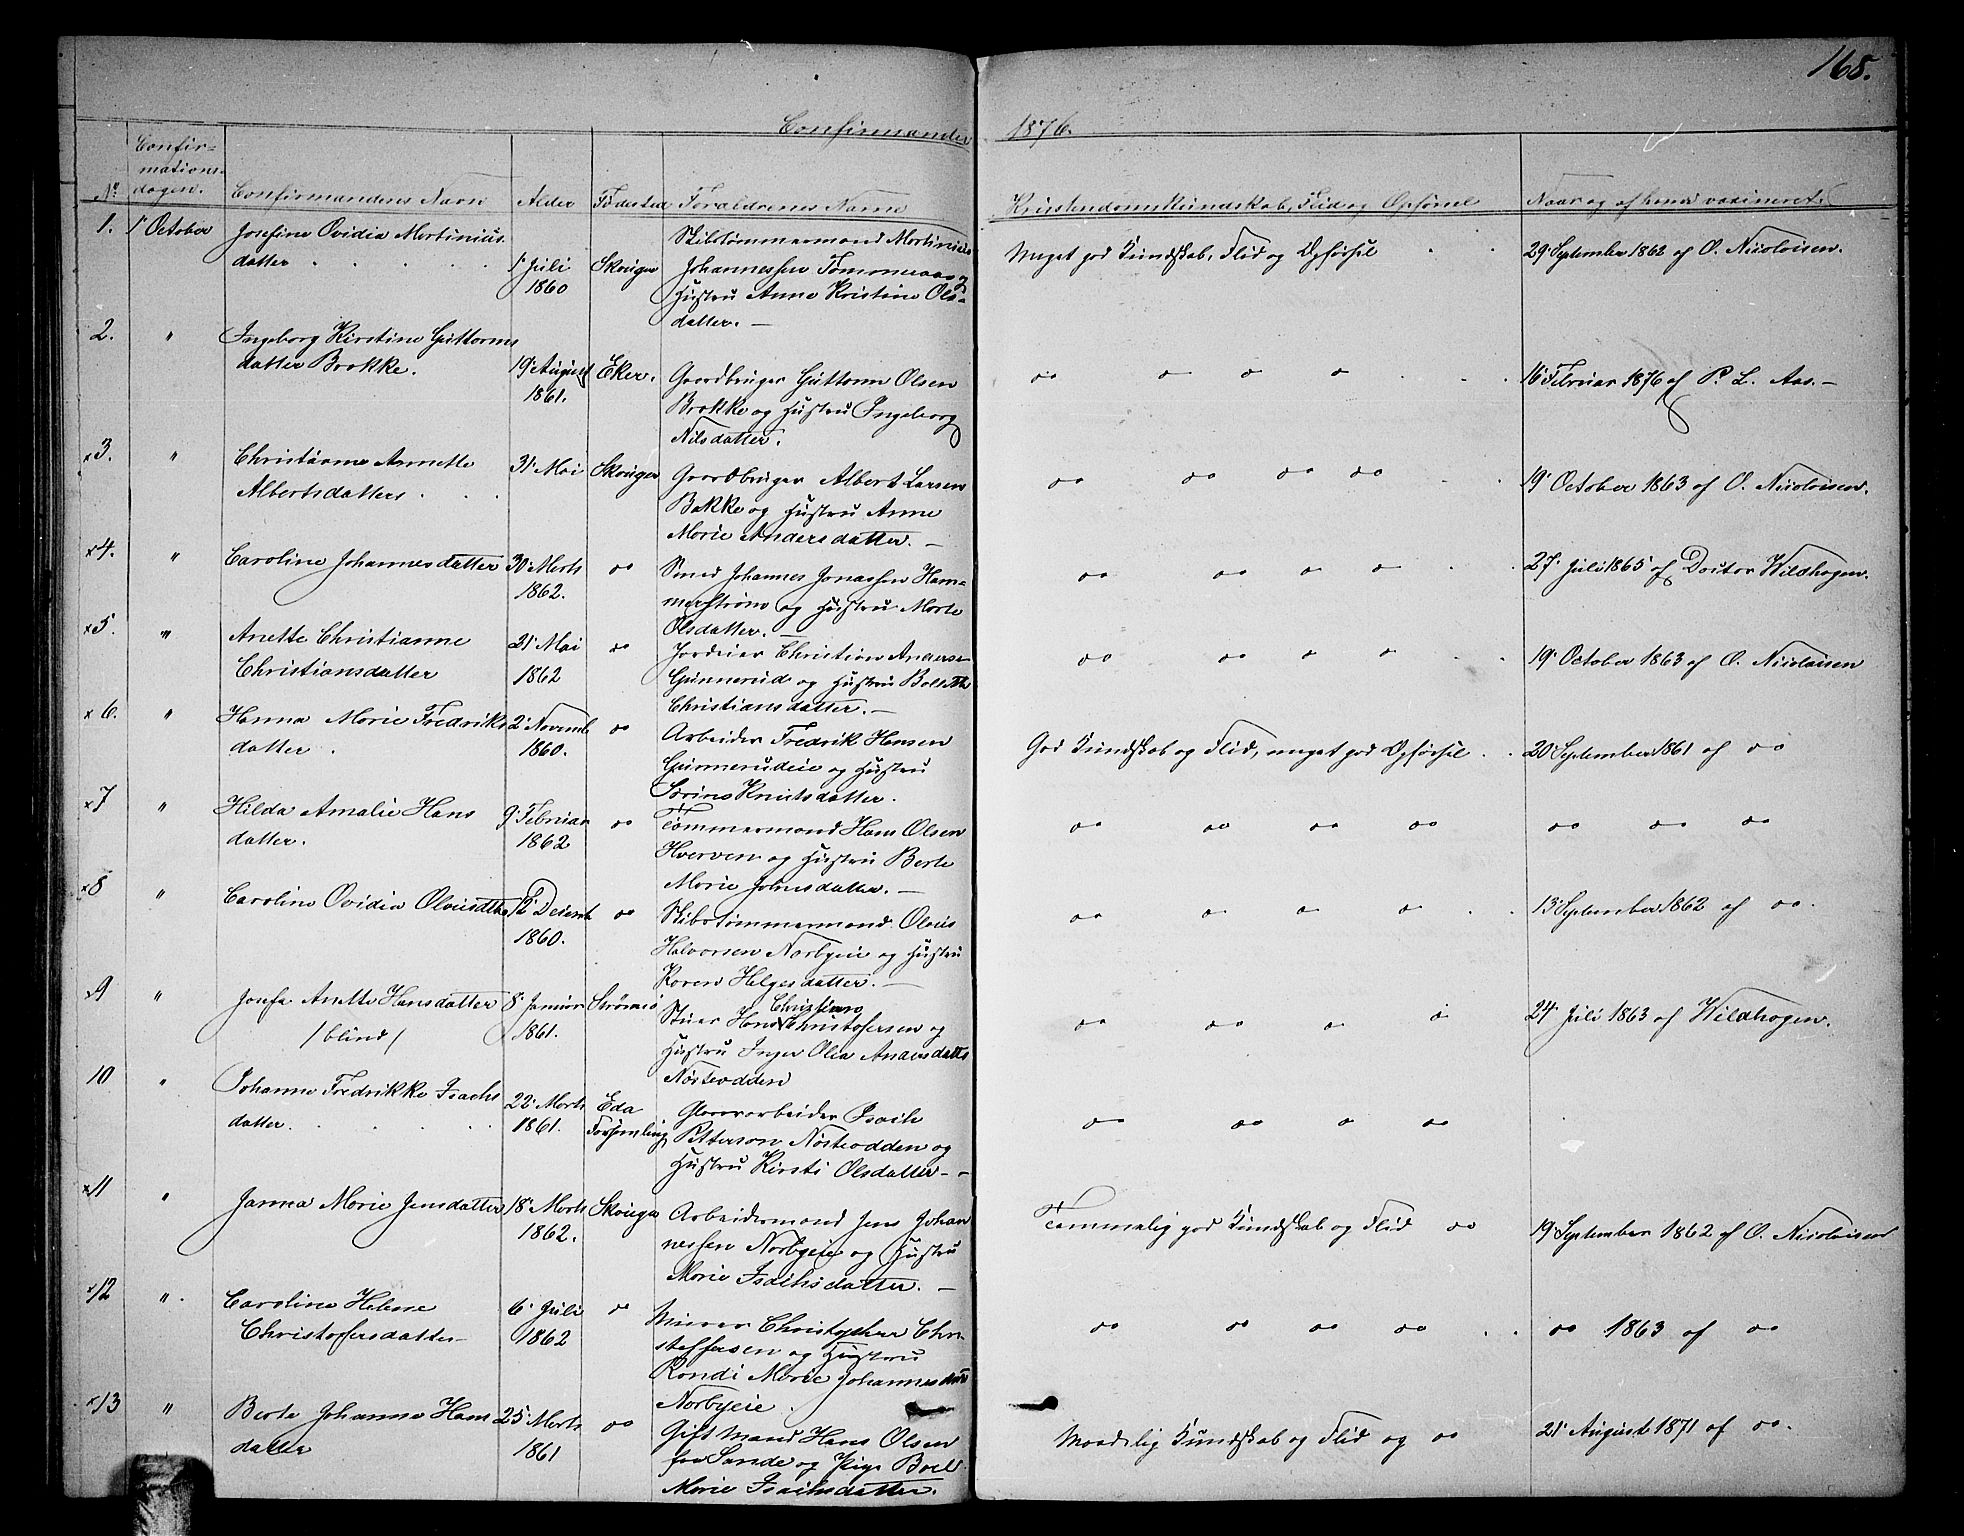 168.
Confirmander 1876.
No. Confirmationsdagen. Confirmandens Navn Alder Fødested Forældrenes Navne Kristendomskundskab, Flid og Opførsel Naar og af hvem vaxineret.
1. 1 October Josefine Ovidia Martinius
datter 1 Juli 1860 Skouger Skibstømmermand Martinius
Johannessen Tommeraas og
Hustru Anne Kristine Ols-
datter. —
Meget god Kundskab, Flid og Opførsel 29 September 1862 af O. Nicolaisen.
2. " Ingeborg Kirstine Guttorms
datter Brekke. 19 August 1861. Eker. Gaardbruger Guttorm Olsen
Brekke og Hustru Ingeborg
Nilsdatter.
" " " " 16 Februar 1876 af P. L. Aas. —
x3. " Christianne Annette
Albertsdatter 31 Mai Skouger Gaardbruger Albert Larsen
Bakke og Hustru Anne
Marie Andersdatter. —
" " " " 19 October 1863 af O. Nicolaisen.
x4. " Caroline Johannesdatter 30 Marts 1862. " Smed Johannes Jonassen Ham-
merstrøm og Hustru Marte
Olsdatter. —
" " " " 27 Juli 1865 af Doctor Wildhagen.
x5. " Anette Christianne
Christiansdatter 21 Mai 1862 " Jordeier Christian Anders-
Gunnerud og Hustru Bolette
Christiansdatter. —
" " " " 19 October 1863 af O. Nicolaisen
x6. " Hanna Marie Fredriks
datter 2 Novemb 1860. " Arbeider Fredrik Hansen
Gunnerudeie og Hustru
Sørine Knutsdatter.
God Kundskab og Flid, meget god Opførsel 20 September 1861 af "
x7 " Hilda Amalie Hans
datter. 9 Februar 1862 " Tømmermand Hans Olsen
Hverven og Hustru Berte
Marie Johnsdatter. —
" " " " " " "
x8 " Caroline Ovidia Olausdtr 12 Decemb 1860. " Skibstømmermand Olaus
Halvorsen Norbyeie og Hustru
Karen Helgesdatter. —
" " " " 13 September 1862 af ".
x9 " Josefa Anette Hansdatter
/blind/ 8 Januar 1861. Strømsø Stuer Hans Christians Christofersen og
Hustru Inger Olea Andersdatter
Nøsteodden
" " " " 24 Juli 1863 af Wildhagen.
10 " Johanne Fredrikke Isachs
datter. 22 Marts 1861. Eda Forsamling Glasarbeider Isach
Petterson Nøsteodden og
Hustru Kirsti Olsdatter —
" " " "
x11 " Janna Marie Jensdatter 18 Marts 1862. Skouger Arbeidermand Jens Johan
nessen Norbyeie og Hustru
Marie Isachsdatter. —
Temmelig god Kundskab og Flid " 19 September 1862 af O. Nicolaisen
x12 " Caroline Helene
Christofersdatter 6 Juli 1862 " Murer Christopher Chri-
stoffersen og Hustru
Randi Marie Johannesdatter
Norbyeie.
" " " " " 1863 af "
x13 " Berte Johanne Hans
datter 25 Marts 1861 " Gift Mand Hans Olsen
fra Sande og Pige Boel
Marie Isachsdatter.
Maadelig Kundskab og Flid og " 21 August 1871 af ".